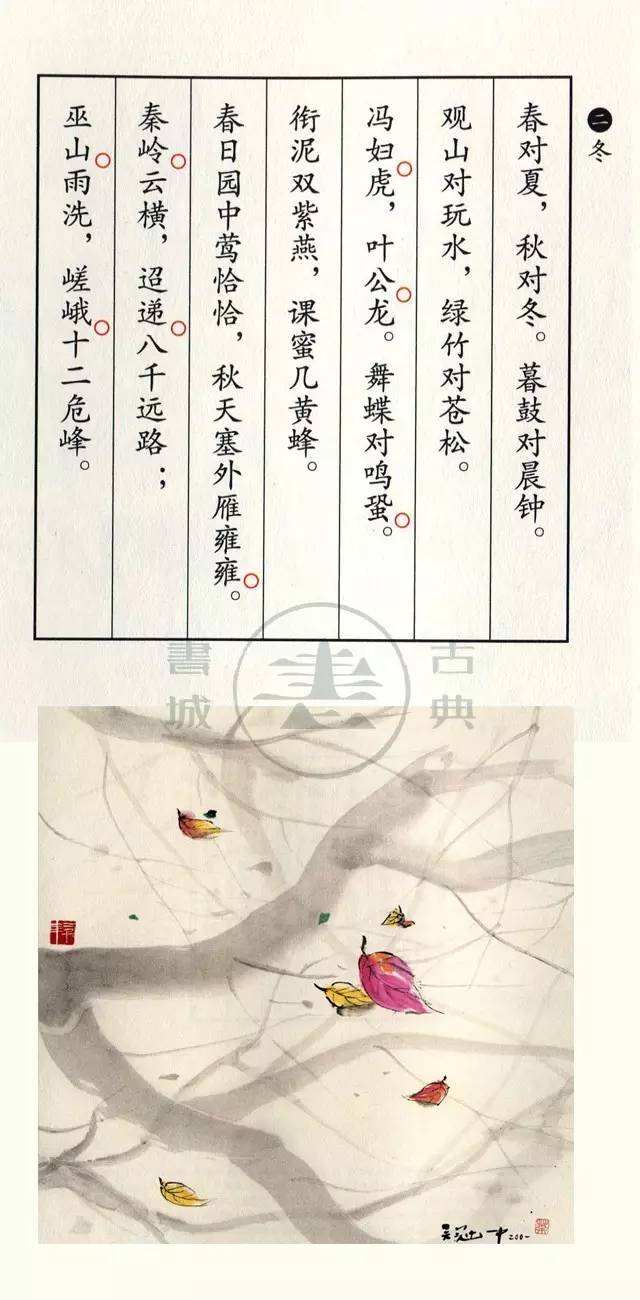 二 冬
春对夏，秋对冬。暮鼓对晨钟。
观山对玩水，绿竹对苍松。
冯妇虎，叶公龙。舞蝶对鸣蛩。
衔泥双紫燕，课蜜几黄蜂。
春日园中莺恰恰，秋天塞外雁雍雍。
秦岭云横，迢递八千远路；
巫山雨洗，嵯峨十二危峰。
古典
書城
吴冠中 2001